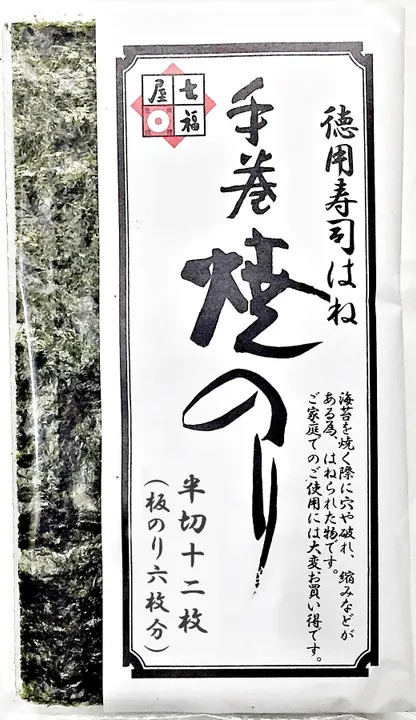 七福屋
徳用寿司はね
手巻
焼のり
海苔を焼く際に穴や破れ、縮みなどが
ある為、はねられた物です。
ご家庭でのご使用には大変お買い得です。
半切十二枚
(板のり六枚分)